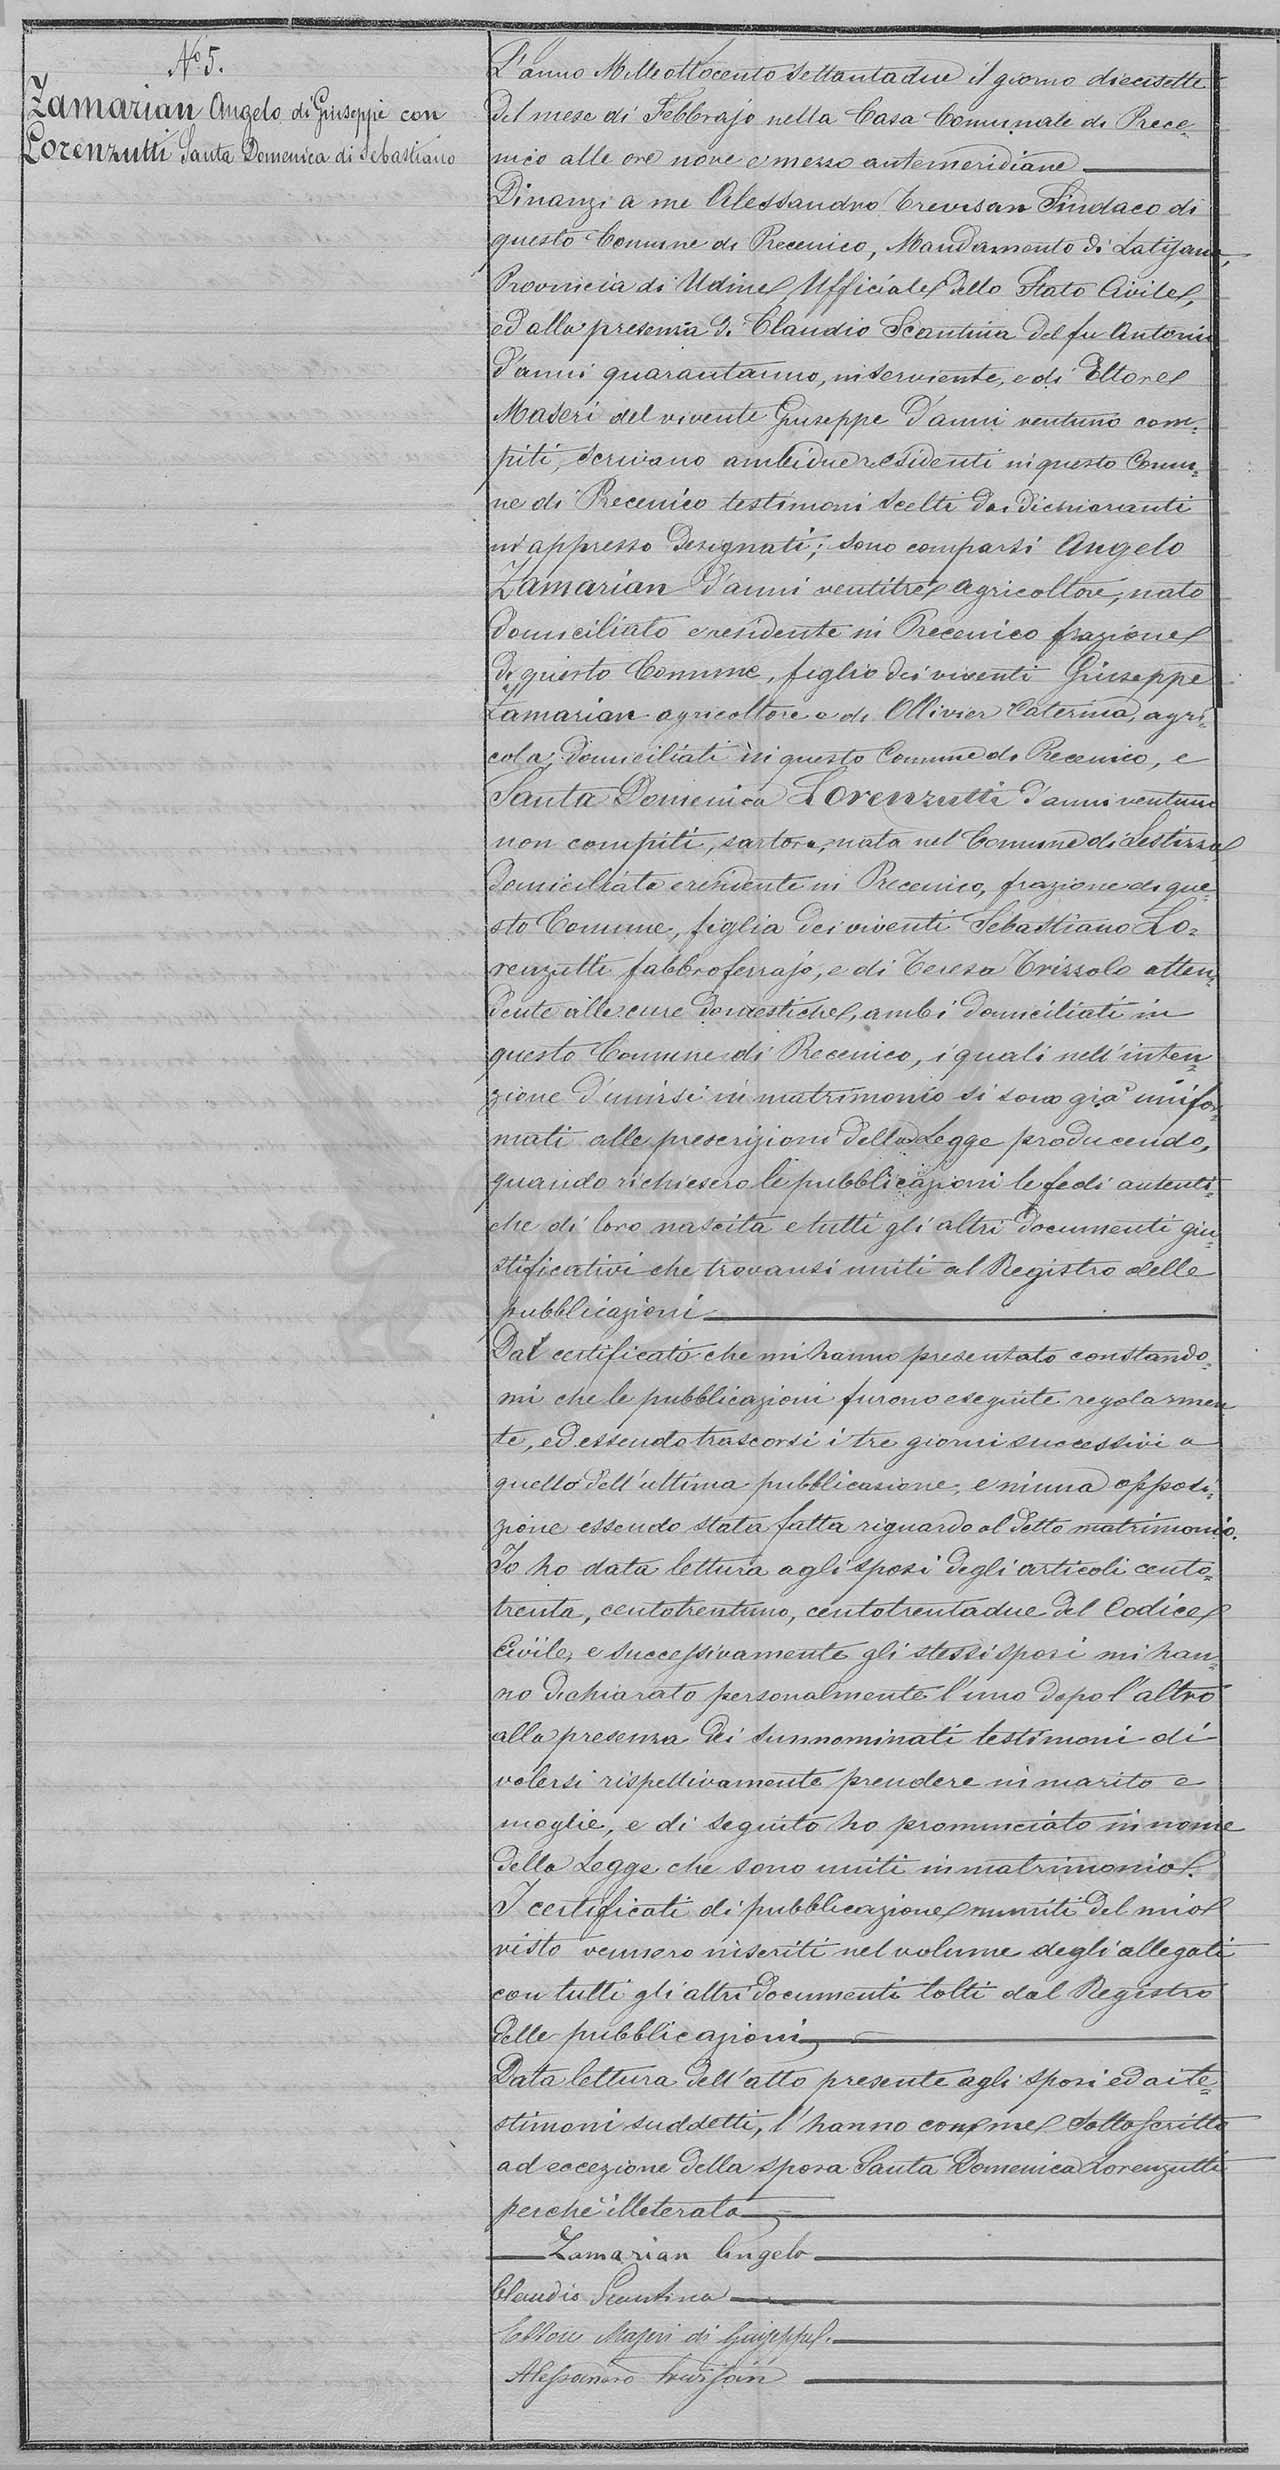 Nº 5.
Zamarian Angelo di Giuseppe con
Lorenzutti Santa Domenica di Sebastiano
L'anno Milleottocento Settantadue il giorno diecisette
del mese di Febbrajo nella Casa Comunale di Prece-
nico alle ore nove e mezzo antemeridiane
Dinanzi a me Alessandro Trevisan Sindaco di
questo Comune di Precenico, Mandamento di Latisana,
Provincia di Udine Ufficiale dello Stato Civile,
ed alla presenza di Claudio Scantina del fu Antonio
d'anni quarantanno, inserviente, e di Ettore
Maseri del vivente Giuseppe d'anni ventuno com-
piti, scrivano ambidue residenti in questo Comu-
ne di Precenico testimoni scelti dai dichiaranti
in appresso designati; sono comparsi Angelo
Zamarian d'anni ventitre agricoltore, nato
domiciliato e residente in Precenico frazione
di questo Comune, figlio dei viventi Giuseppe
Zamarian agricoltore e di Ollivier Caterina, agri-
cola; domiciliati in questo Comune di Precenico, e
Santa Domenica Lorenzutti d'anni ventuno
non compiti, sartora, nata nel Comune di Lestizza
domiciliata e residente in Precenico, frazione di que-
sto Comune, figlia dei viventi Sebastiano Lo-
renzutti fabbroferrajo, e di Teresa Trizzolo atten-
dente alle cure domestiche, ambi domiciliati in
questo Comune di Precenico, i quali nell'inten-
zione d'unirsi in matrimonio si sono già unifor-
mati alle prescrizioni della Legge producendo,
quando richiesero le pubblicazioni le fedi autenti-
che di loro nascita e tutti gli altri documenti giu-
stificativi che trovansi uniti al Registro delle
pubblicazioni
Dal certificato che mi hanno presentato constando-
mi che le pubblicazioni furono eseguite regolarmen
te, ed essendo trascorsi i tre giorni successivi a
quello dell'ultima pubblicazione, e niuna opposi-
zione essendo stata fatta riguardo al detto matrimonio.
Io ho data lettura agli sposi degli articoli cento-
trenta, centotrentuno, centotrentadue del Codice
Civile, e successivamente gli stessi sposi mi han-
no dichiarato personalmente l'uno dopo l'altro
alla presenza dei sunnominati testimoni di
volersi rispettivamente prendere in marito e
moglie, e di seguito ho pronunciato in nome
della Legge che sono uniti in matrimonio.
I certificati di pubblicazione muniti del mio
visto vennero inseriti nel volume degli allegati
con tutti gli altri documenti tolti dal Registro
delle pubblicazioni
Data lettura dell'atto presente agli sposi ed ai te-
stimoni suddetti, l'hanno con me sottoscritto
ad eccezione della sposa Santa Domenica Lorenzutti
perchè illeterata
Zamarian Angelo
Claudio Scantina
Ettore Maseri di Giuseppe.
Alessandro Trevisan